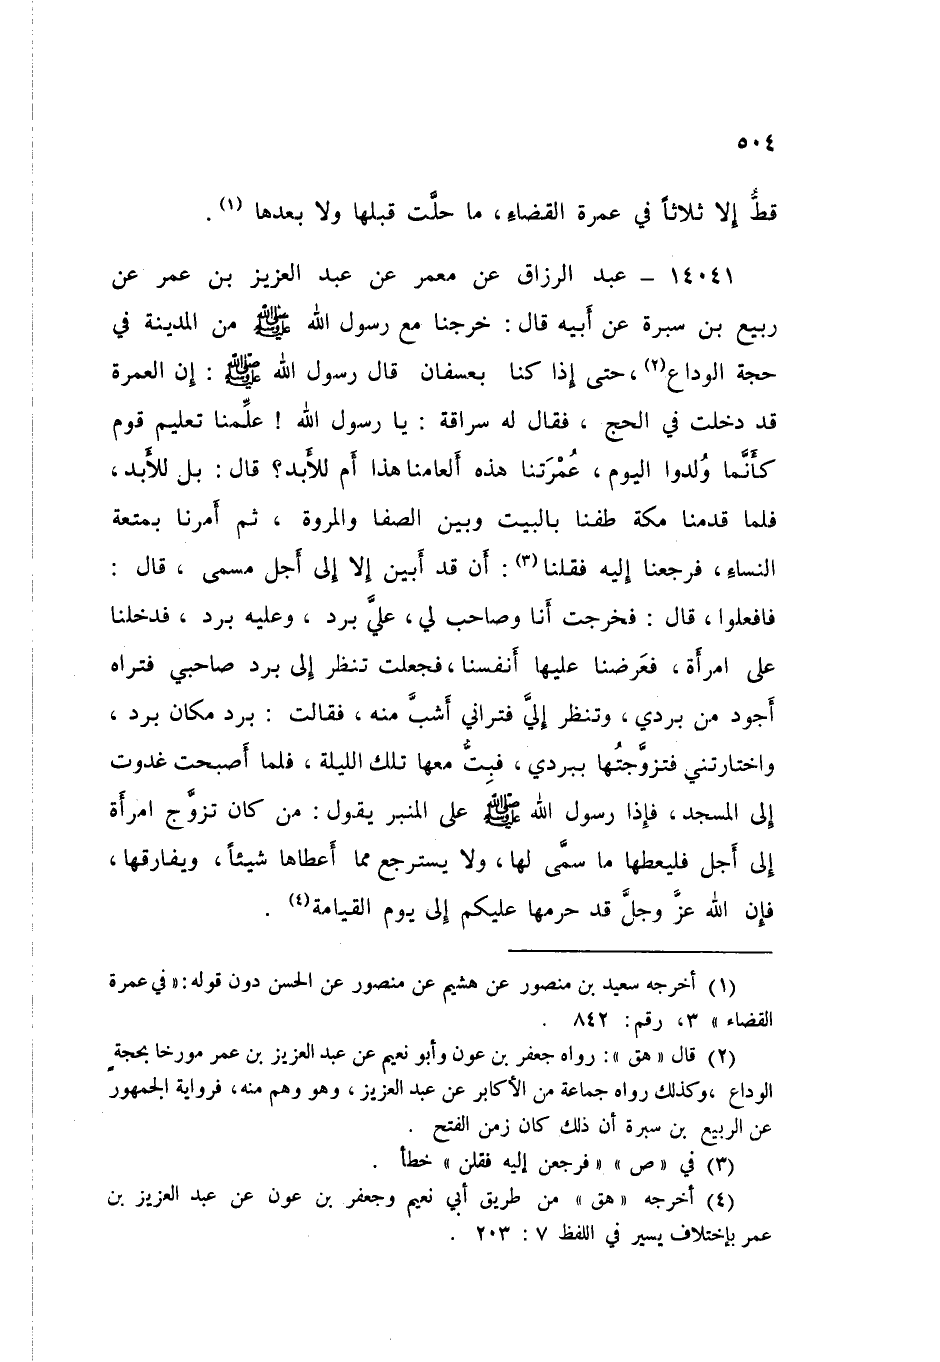 ٥٠٤
قطُّ إلا ثلاثاً في عمرة القضاء، ما حلَّت قبلها ولا بعدها (١) .
١٤٠٤١ – عبد الرزاق عن معمر عن عبد العزيز بن عمر عن
ربيع بن سبرة عن أبيه قال : خرجنا مع رسول الله ﷺ من المدينة في
حجة الوداع(٢) ،حتى إذا كنا بعسفان قال رسول الله ﷺ : إن العمرة
قد دخلت في الحج ، فقال له سراقة : يا رسول الله ! علِّمنا تعليم قوم
كأنَّما وُلدوا اليوم ، عُمْرَتنا هذه ألعامنا هذا أم للأبد؟ قال : بل للأبد ،
فلما قدمنا مكة طفنا بالبيت وبين الصفا والمروة ، ثم أمرنا بمتعة
النساء ، فرجعنا إليه فقلنا(٣) : أن قد أبين إلا إلى أجل مسمى ، قال :
فافعلوا ، قال : فخرجت أنا وصاحب لي ، عليَّ برد ، وعليه برد ، فدخلنا
على امرأة ، فعَرضنا عليها أنفسنا ،فجعلت تنظر إلى برد صاحبي فتراه
أجود من بردي ، وتنظر إليَّ فتراني أشبَّ منه ، فقالت : برد مكان برد ،
واختارتني فتزوَّجتُها ببردي ، فبِتُّ معها تلك الليلة ، فلما أصبحت غدوت
إلى المسجد ، فإذا رسول الله ﷺ على المنبر يقول : من كان تزوَّج امرأة
إلى أجل فليعطها ما سمَّى لها ، ولا يسترجع مما أعطاها شيئاً ، ويفارقها ،
فإن الله عزَّ وجلَّ قد حرمها عليكم إلى يوم القيامة(٤) .
(١) أخرجه سعيد بن منصور عن هشيم عن منصور عن الحسن دون قوله :« في عمرة
القضاء » ٣، رقم: ٨٤٢ .
(٢) قال « هق »: رواه جعفر بن عون وأبو نعيم عن عبد العزيز بن عمر مورخا بحجة
الوداع ،وكذلك رواه جماعة من الأكابر عن عبد العزيز ، وهو وهم منه، فرواية الجمهور
عن الربيع بن سبرة أن ذلك كان زمن الفتح .
(٣) في « ص » « فرجعن إليه فقلن » خطأ .
(٤) أخرجه « هق » من طريق أبي نعيم وجعفر بن عون عن عبد العزيز بن
عمر بإختلاف يسير في اللفظ ٧ : ٢٠٣ .